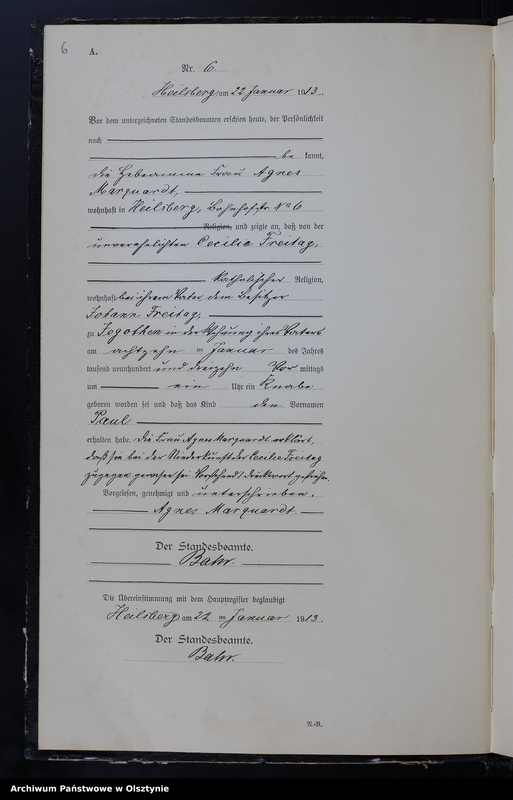 6
A.
Nr. 6.
Heilsberg, am 22 Januar 1913.
Vor dem unterzeichneten Standesbeamten erschien heute, der Persönlichkeit
nach
be kannt,
die Hebamme Frau Agnes
Marquardt,
wohnhaft in Heilsberg, Bahnhofstr No 6
Religion, und zeigte an, daß von der
unverehelichten Cecilia Freitag,
katholischer Religion,
wohnhaft bei ihrem Vater, dem Besitzer
Johann Freitag,
zu in der Wohnung ihres Vaters
am achtzehn ten Januar des Jahres
tausend neunhundert und dreizehn Vor mittags
um ein Uhr ein Knabe
geboren worden sei und daß das Kind den Vornamen
Paul
erhalten habe. Die Frau Agnes Marquardt erklärt,
daß sie bei der Niederkunft der Cecilie Freitag
zugegen gewesen sei. Vorstehend 1 Druckwort gestrichen.
Vorgelesen, genehmigt und unterschrieben.
Agnes Marquardt
Der Standesbeamte.
Bahr.
Die Übereinstimmung mit dem Hauptregister beglaubigt
Heilsberg, am 22 ten Januar 1913.
Der Standesbeamte.
Bahr.
N.-R.
Archiwum Państwowe w Olsztynie